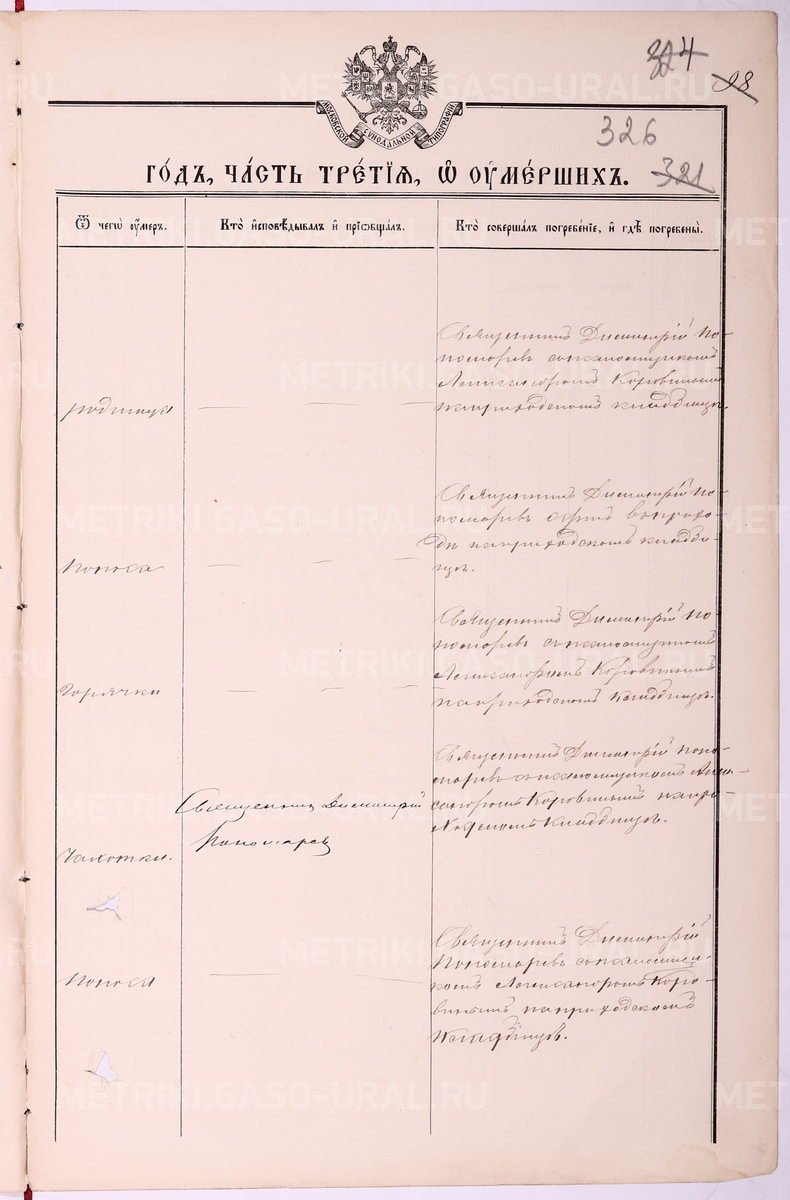 324
98
МОСКОВСКОЙ СѴНОДАЛЬНОЙ ТИПОГРАФІИ
326
ГО́ДЪ, ЧА́СТЬ ТРЕ́ТІѦ, Ѡ᾽ ОУМЕ́РШИХЪ.
321
Ѿ чегѡ̀ оу҆́меръ.
Кто̀ и҆сповѣ́дывалъ и҆ прїѡбща́лъ.
Кто̀ соверша́лъ погребе́нїе, и҆ гдѣ̀ погребены̀.
Священникъ Димитрій По-
номаревъ съ псаломщикомъ
Александромъ Коровинымъ
на приходскомъ кладбищѣ.
родимца
Священникъ Димитрій По-
номаревъ
на приходскомъ кладби-
щѣ.
поноса
Священникъ Димитрій По-
номаревъ съ псаломщикомъ
Александромъ Коровинымъ
на приходскомъ кладбищѣ.
горячки
Священникъ Димитрій Поно-
маревъ съ псаломщикомъ Алек-
сандромъ Коровинымъ на при-
ходскомъ кладбищѣ.
Священникъ Димитрій
Пономаревъ
Чахотки.
Священникъ Димитрій
Пономаревъ съ псаломщи-
комъ Александромъ Коро-
винымъ на приходскомъ
кладбищѣ.
поноса
METRIKI.GASO-URAL.RU